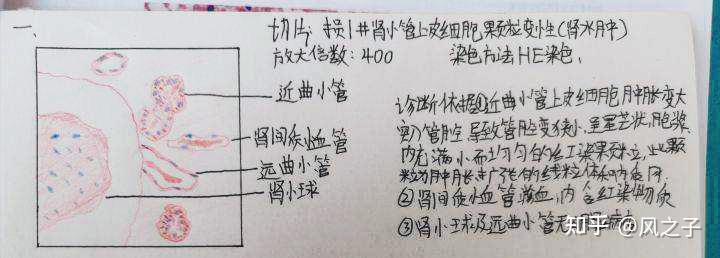 一、
切片: 损1#肾小管上皮细胞颗粒变性(肾水肿)
放大倍数: 400 染色方法HE染色.
近曲小管
肾间质血管
远曲小管
肾小球
诊断依据①近曲小管上皮细胞肿胀变大
突入管腔, 导致管腔变狭小, 呈星芒状, 胞浆
内充满小而均匀的红染颗粒, 此颗
粒为肿胀扩张的线粒体和内质网
②肾间质小血管 血, 内含红染物质
③肾小球及远曲小管无
知乎 @风之子